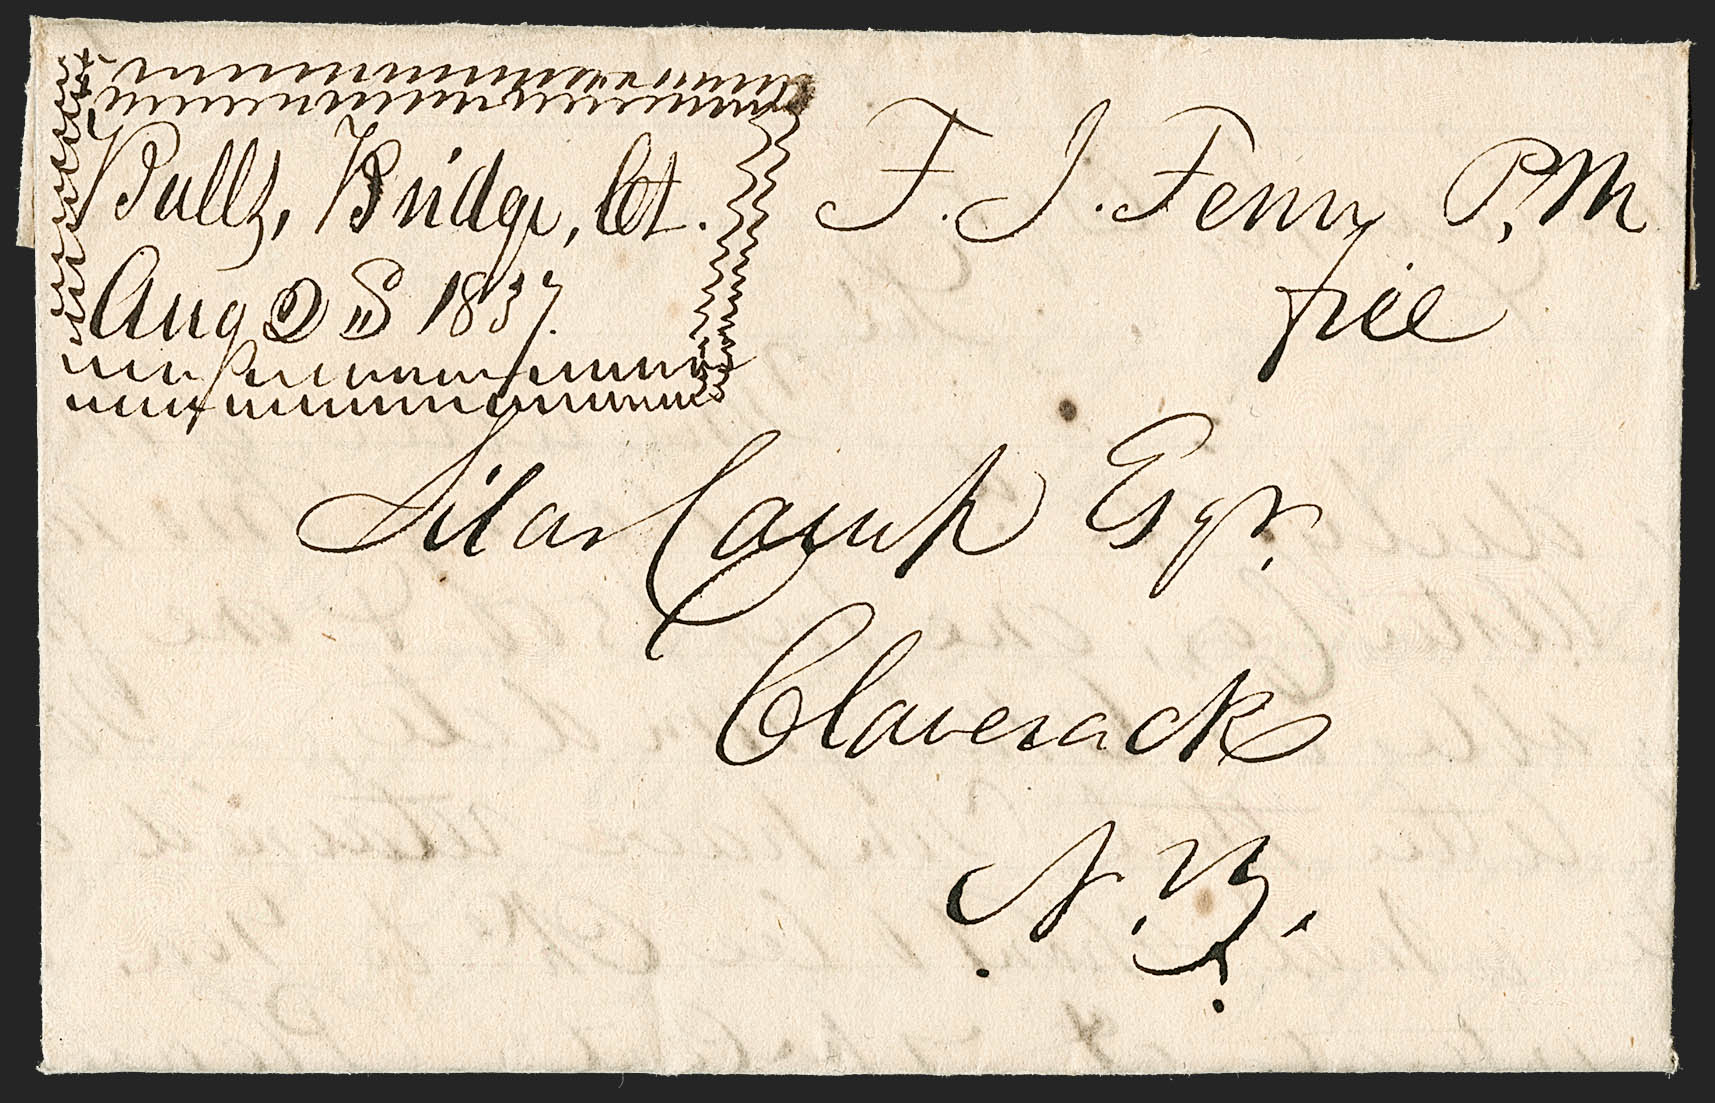 Bulls, Bridge, Ct.
Aug 25 1837.
F. J. Fenn P. M
free
Silas Camp Esqr.
Claverack
N. Y.